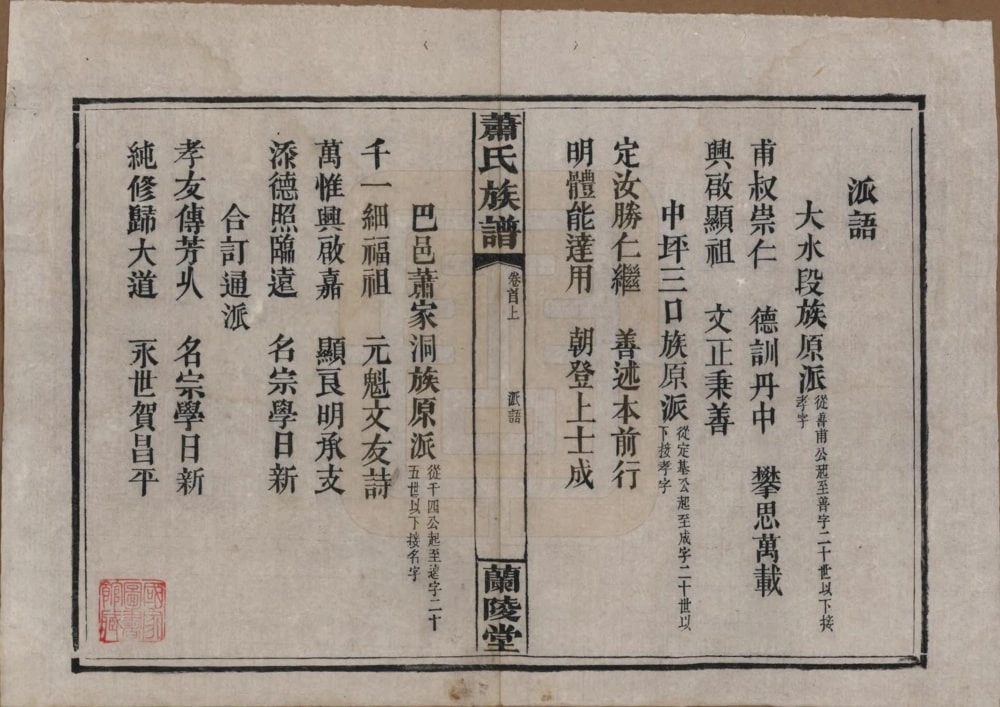 派語
大水段族原派 從善甫公起至善字二十世以下接
孝字
甫叔崇仁 德訓丹中 攀思萬載
興啟顯祖 文正秉善
中坪三口族原派 從定基公起至成字二十世以
下接孝字
定汝勝仁繼 善述本前行
明體能達用 朝登上士成
蕭氏族譜
卷首上
派語
蘭陵堂
巴邑蕭家洞族原派 從千四公起至遠字二十
五世以下接名字
千一細福祖 元魁文友詩
萬惟興啟嘉 顯良明承支
添德照臨遠 名宗學日新
合訂通派
孝友傳芳乆 名宗學日新
純修歸大道 永世賀昌平
國家
圖書
館藏